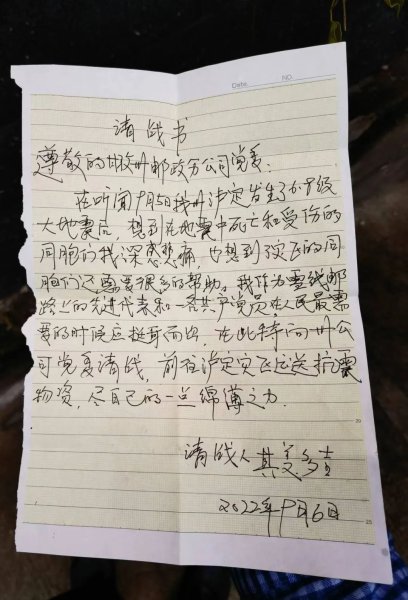 Date. NO.
请战书
尊敬的甘孜州邮政分公司党委:
在听闻9月5日我州泸定发生了6.8级
大地震后,想到在地震中死亡和受伤的
同胞们我深感悲痛,也想到灾区的同
胞们还需要很多的帮助。我作为雪线邮
路上的先进代表和一名共产党员在人民最需
要的时候应挺身而出,在此特向州公
司党委请战,前往泸定灾区运送抗震
物资,尽自己的一点绵薄之力.
20
请战人 其美多吉
2022年9月6日
25